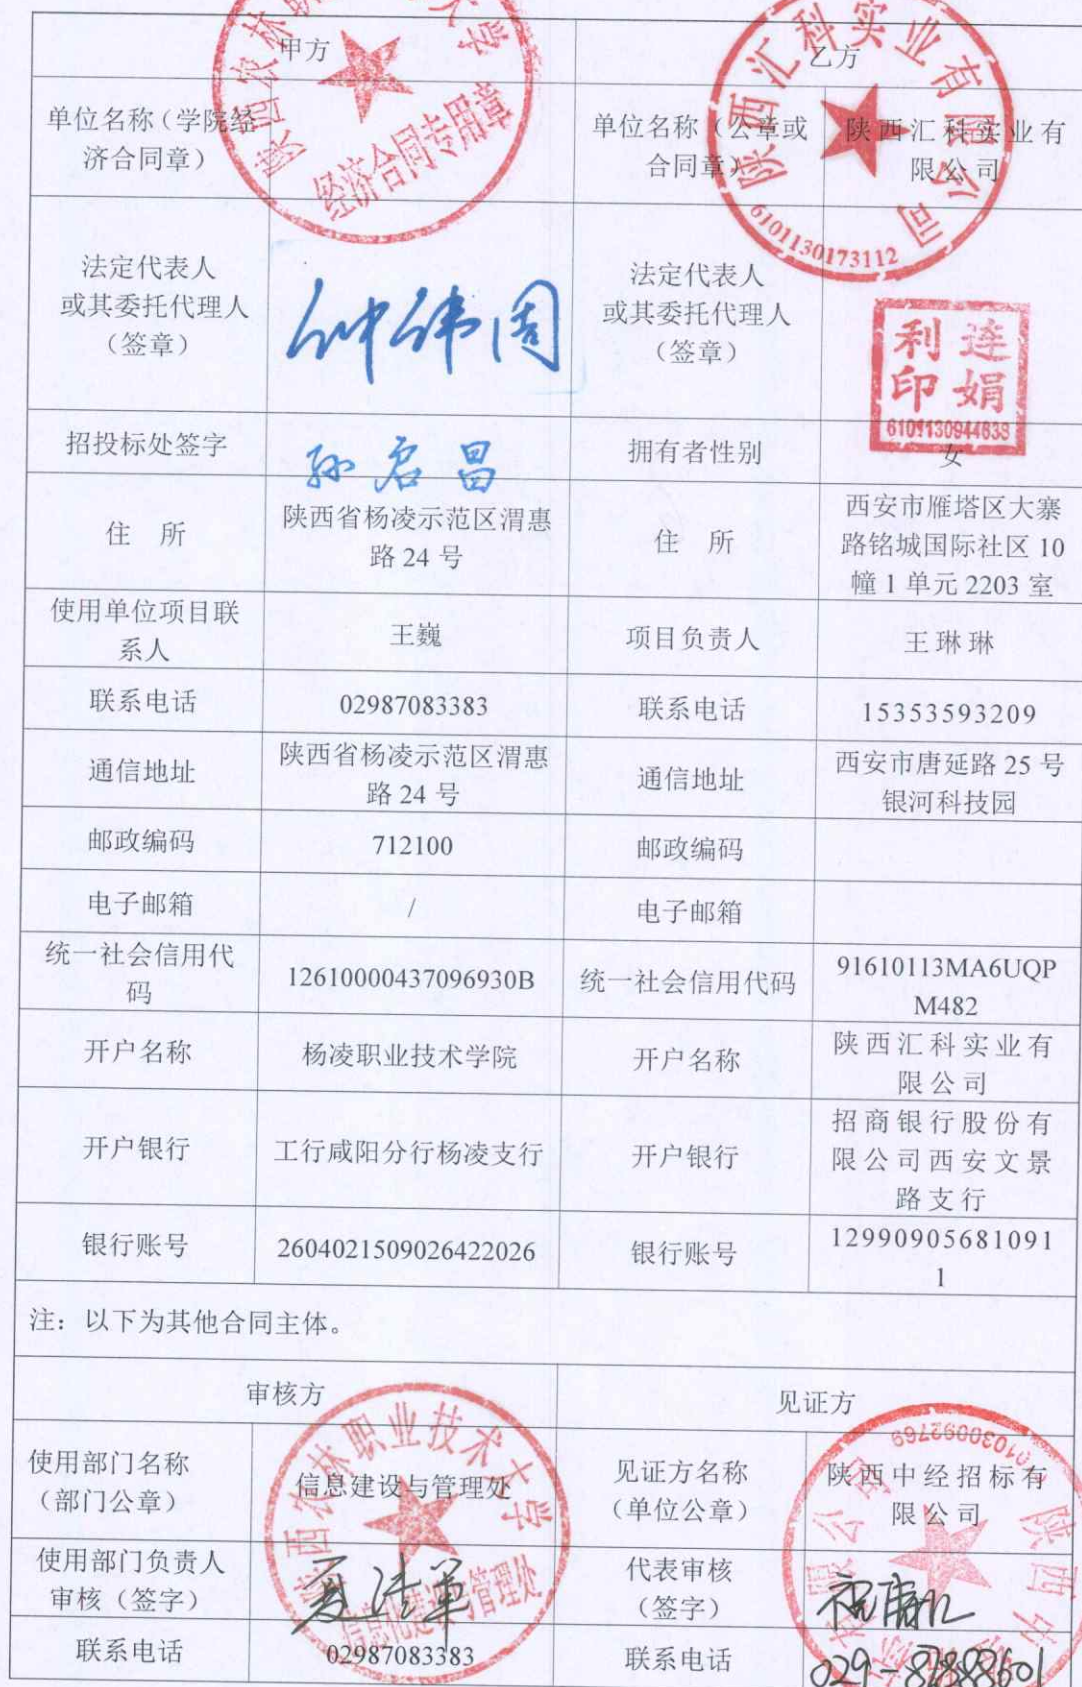 甲方
乙方
单位名称（学院经
济合同章）
单位名称（公章或
合同章）
陕西汇科实业有
限公司
经济合同专用章
陕西汇科实业有限公司
6101130173112
法定代表人
或其委托代理人
（签章）
法定代表人
或其委托代理人
（签章）
利 连
印 娟
6101130944638
招投标处签字
孙君昌
拥有者性别
女
住 所
陕西省杨凌示范区渭惠
路 24 号
住 所
西安市雁塔区大寨
路铭城国际社区 10
幢 1 单元 2203 室
使用单位项目联
系人
王巍
项目负责人
王琳琳
联系电话
02987083383
联系电话
15353593209
通信地址
陕西省杨凌示范区渭惠
路 24 号
通信地址
西安市唐延路 25 号
银河科技园
邮政编码
712100
邮政编码
电子邮箱
/
电子邮箱
统一社会信用代
码
12610000437096930B
统一社会信用代码
91610113MA6UQP
M482
开户名称
杨凌职业技术学院
开户名称
陕西汇科实业有
限公司
开户银行
工行咸阳分行杨凌支行
开户银行
招商银行股份有
限公司西安文景
路支行
银行账号
2604021509026422026
银行账号
12990905681091
1
注：以下为其他合同主体。
审核方
见证方
使用部门名称
（部门公章）
信息建设与管理处
见证方名称
（单位公章）
陕西中经招标有
限公司
使用部门负责人
审核（签字）
代表审核
（签字）
联系电话
02987083383
联系电话